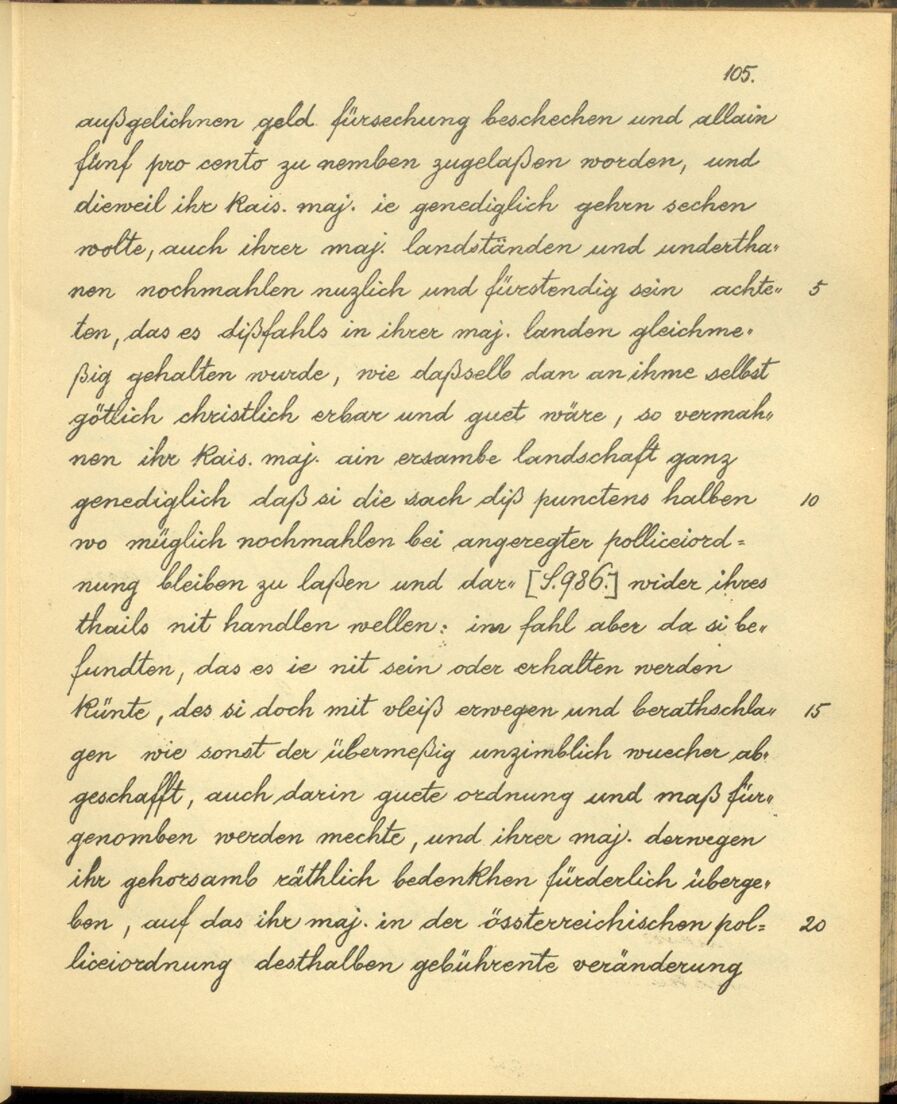 105.
außgelichnen geld fürsechung beschechen und allain
fünf pro cento zu nemben zugelaßen worden, und
dieweil ihr kais. maj. ie genediglich gehrn sechen
wolte, auch ihrer maj. landständen und undertha„
nen nochmahlen nuzlich und fürstendig sein achte„ 5
ten, das es dißfahls in ihrer maj. landen gleichme„
ßig gehalten wurde, wie daßselb dan an ihme selbst
götlich christlich erbar und guet wäre, so vermah„
nen ihr kais. maj. ain ersambe landschaft ganz
genediglich daß si die sach diß punctens halben 10
wo müglich nochmahlen bei angeregter polliceiord=
nung bleiben zu laßen und dar„ [S. 986.] wider ihres
thails nit handlen wellen: im fahl aber da si be„
fundten, das es ie nit sein oder erhalten werden
künte, des si doch mit vleiß erwegen und berathschla„ 15
gen wie sonst der übermeßig unzimblich wuecher ab„
geschafft, auch darin guete ordnung und maß für„
genomben werden mechte, und ihrer maj. derwegen
ihr gehorsamb räthlich bedenkhen fürderlich überge„
ben, auf das ihr maj. in der össterreichischen pol= 20
liceiordnung desthalben gebührente veränderung